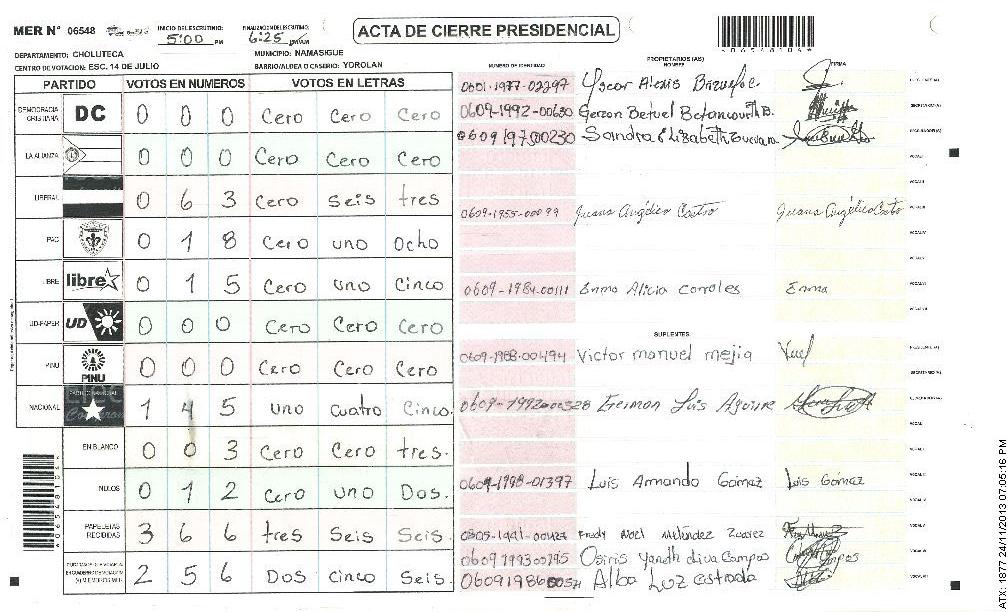 MER Nº 06548
INICIO DEL ESCRUTINIO: 5:00 PM
FINALIZACION ESCRUTINIO: 6:25 PM/AM
ACTA DE CIERRE PRESIDENCIAL
DEPARTAMENTO: CHOLUTECA
MUNICIPIO: NAMASIGUE
CENTRO DE VOTACION: ESC. 14 DE JULIO
BARRIO/ALDEA O CASERIO: YOROLAN
PARTIDO VOTOS EN NUMEROS VOTOS EN LETRAS
DEMOCRACIA CRISTIANA DC 0 0 0 Cero Cero Cero
LA ALIANZA 0 0 0 Cero Cero Cero
LIBERAL 0 6 3 Cero Seis tres
PAC 0 1 8 Cero uno Ocho
LIBRE libre 0 1 5 Cero uno Cinco
UD-FAPER UD 0 0 0 Cero Cero Cero
PINU PINU 0 0 0 Cero Cero Cero
NACIONAL 1 4 5 uno cuatro Cinco.
EN BLANCO 0 0 3 Cero Cero tres.
NULOS 0 1 2 Cero uno Dos.
PAPELETAS RECIBIDAS 3 6 6 tres Seis Seis.
2 5 6 Dos cinco Seis.
NUMERO DE IDENTIDAD
PROPIETARIOS (AS)
NOMBRE
FIRMA
0601-1977-02297 Yoscar Alexis
0609-1992-00630 Gerzon Betuel Betancourth B.
0609197500230 Sandra Elizabeth Guevara
0609-1955-00099 Juana Angélica Castro Juana Angélica Castro
0609-1984-00111 Enma Alicia corrales Enma
SUPLENTES
0609-1988-001494 Victor manuel mejia
0609-1992-00328 German Luis Aguirre
0609-1998-01397 Luis Armando Gómez Luis Gómez
Fredy Noel Meléndez Zuarez
0609199300195 Osiris Yaneth diva Campos
Alba Luz estrada
ATX: 1877 24/11/2013 07:05:16 PM